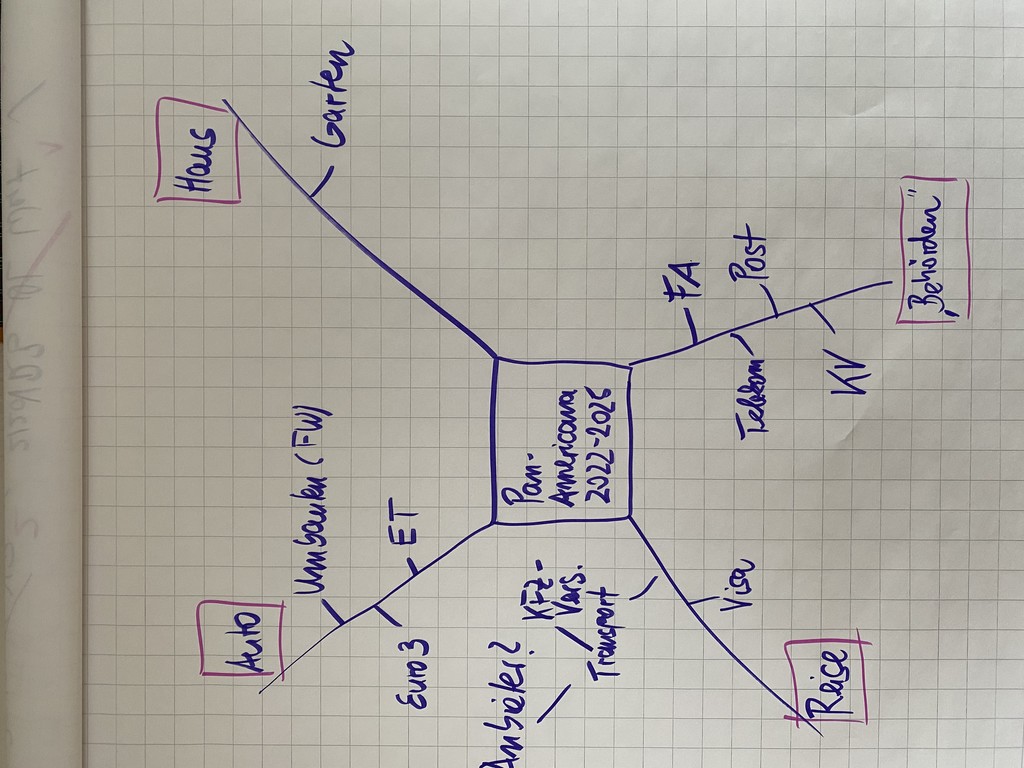 Pan-
Americana
2022-2026
Auto
Umbauten (FW)
ET
Euro 3
Haus
Garten
Reise
Visa
Transport
KFZ-
Vers.
Anbieter?
„Behörden"
FA
Post
Telekom
KV